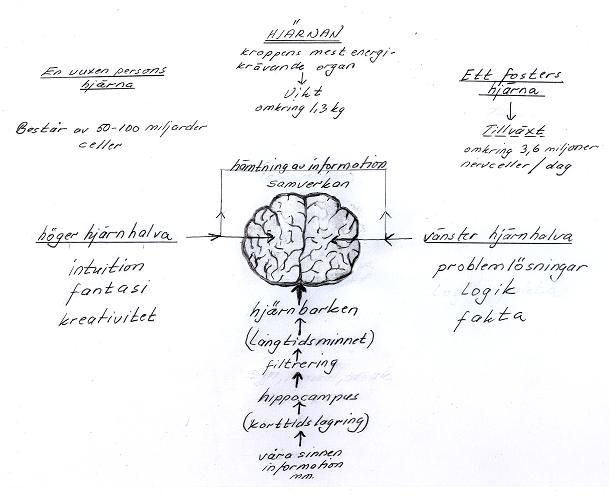 HJÄRNAN
kroppens mest energi-
krävande organ
Vikt
omkring 1,3 kg
En vuxen persons
hjärna
Består av 50-100 miljarder
celler
Ett fosters
hjärna
Tillväxt
omkring 3,6 miljoner
nervceller/dag
hämtning av information
samverkan
höger hjärnhalva
intuition
fantasi
kreativitet
vänster hjärnhalva
problemlösningar
Logik
fakta
hjärnbarken
(långtidsminnet)
filtrering
hippocampus
(korttidslagring)
våra sinnen
information
mm.